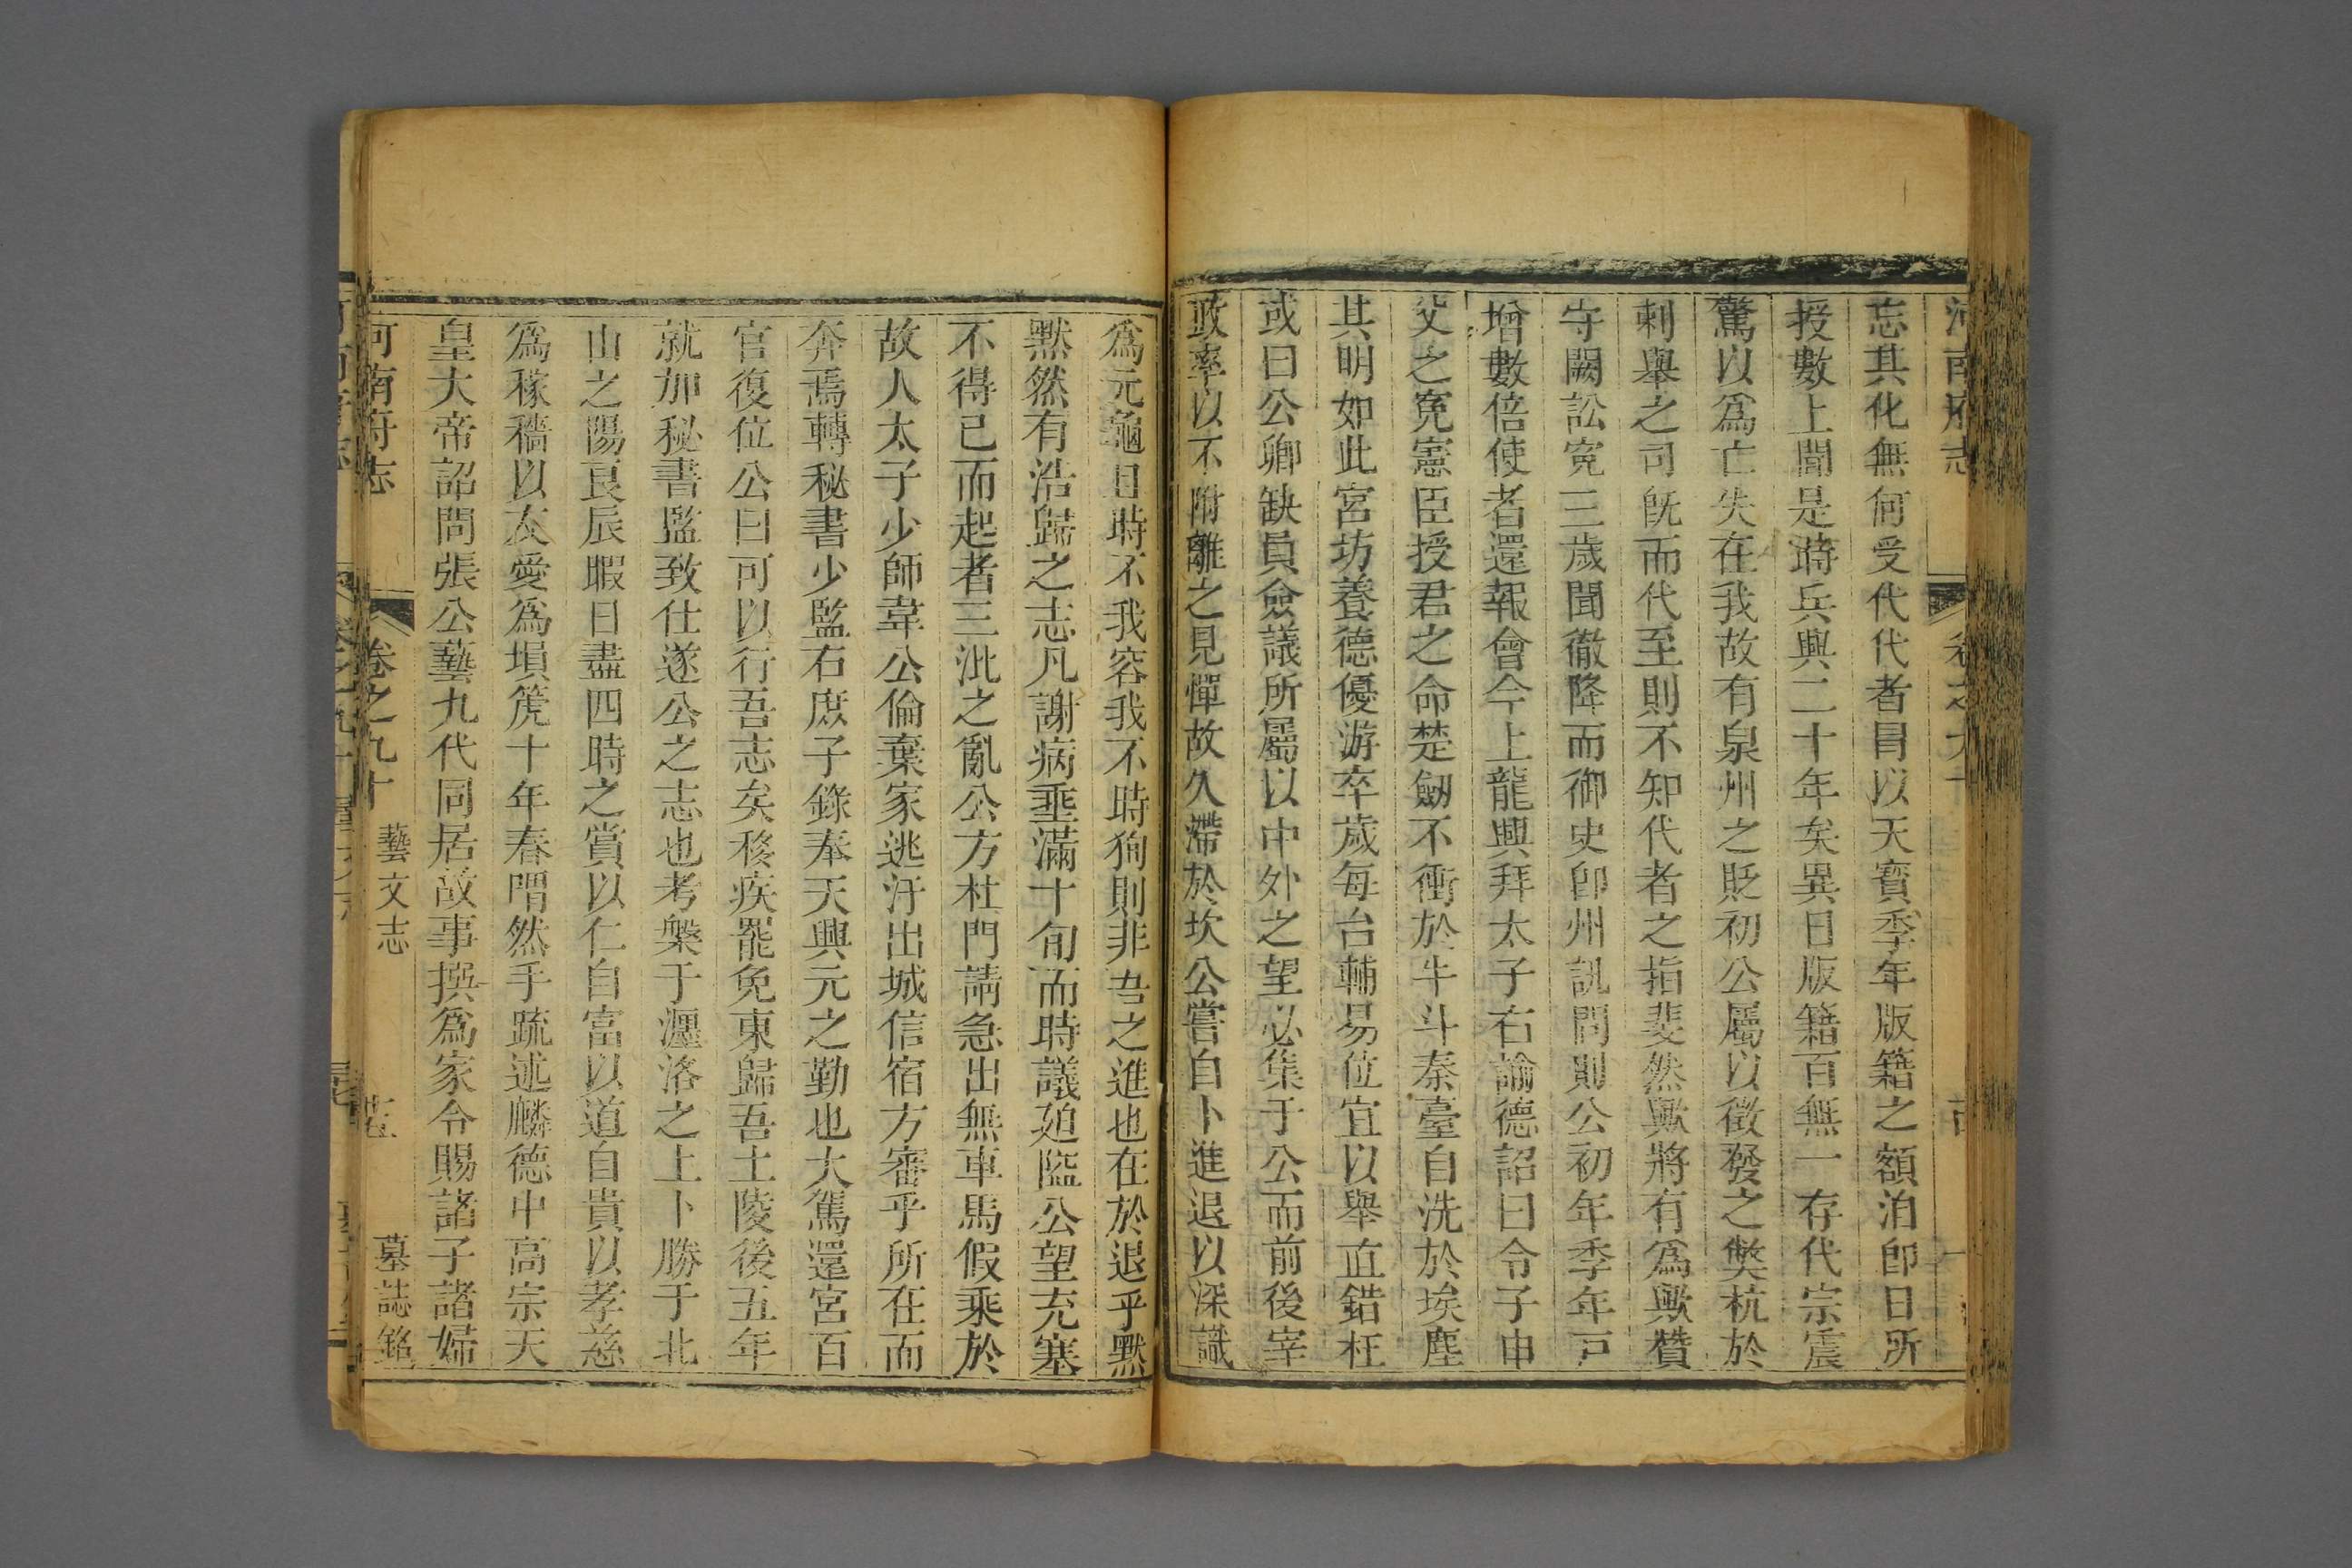 河南府志 卷之九十
忘其化無何受代代者冒以天寶季年版籍之額洎卽日所
授數上聞是時兵興二十年矣異日版籍百無一存代宗震
驚以爲亡失在我故有泉州之貶初公屬以徵發之獘杭於
刺舉之司旣而代至則不知代者之指斐然歟將有爲歟贊
守闕訟寃三歲聞徹降而御史卽州訊問則公初年季年戸
增數倍使者還報會今上龍興拜太子右諭德詔曰令子申
父之寃憲臣授君之命楚劒不衝於牛斗秦臺自洗於埃塵
其明如此宮坊養德優游卒歲每台輔易位宜以舉直錯枉
或曰公卿缺員僉議所屬以中外之望必集于公而前後宰
政率以不附離之見憚故久滯於坎公嘗自卜進退以深識
爲元龜日時不我容我不時狥則非吾之進也在於退乎黙
黙然有浩歸之志凡謝病埀滿十旬而時議廹隘公望充塞
不得已而起者三沘之亂公方杜門請急出無車馬假乘於
故人太子少師韋公倫棄家逃汙出城信宿方審乎所在而
奔焉轉秘書少監右庶子錄奉天興元之勤也大駕還宮百
官復位公曰可以行吾志矣移疾罷免東歸吾土陵後五年
就加秘書監致仕遂公之志也考槃于瀍洛之上卜勝于北
山之陽良辰暇日盡四時之賞以仁自富以道自貴以孝慈
爲稼穡以友愛爲塤箎十年春喟然手疏述麟德中高宗天
皇大帝詔問張公藝九代同居故事撰爲家令賜諸子諸婦
河南府志 卷之九十 藝文志 墓誌銘